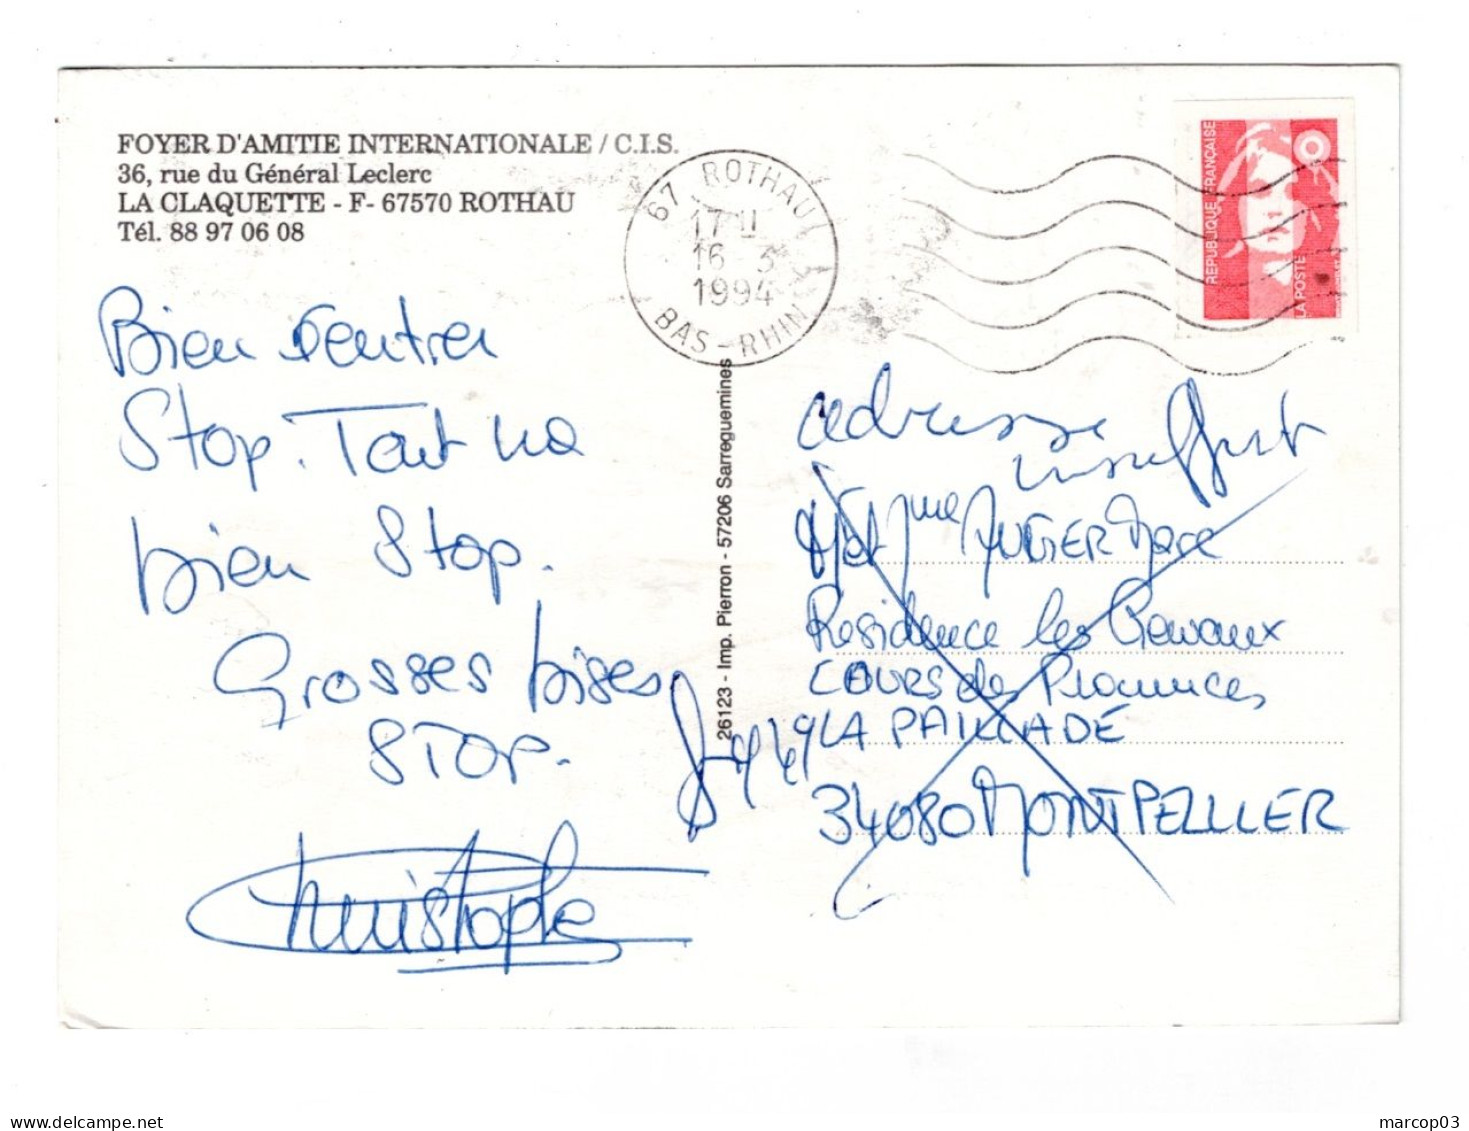 FOYER D'AMITIE INTERNATIONALE / C.I.S.
36, rue du Général Leclerc
LA CLAQUETTE - F- 67570 ROTHAU
Tél. 88 97 06 08
67 ROTHAU
17 H
16-5
1994
BAS-RHIN
REPUBLIQUE FRANÇAISE
LA POSTE
Bien rentrer
Stop. Tout va
bien Stop.
Grosses bises
STOP.
Christophe
26123 - Imp. Pierron - 57206 Sarreguemines
adresse
insuffist
Mr et Mme AUGIER Marc
Residence les
COURS des Provinces
LA PAILLADE
34080 MONTPELLIER
marcop03